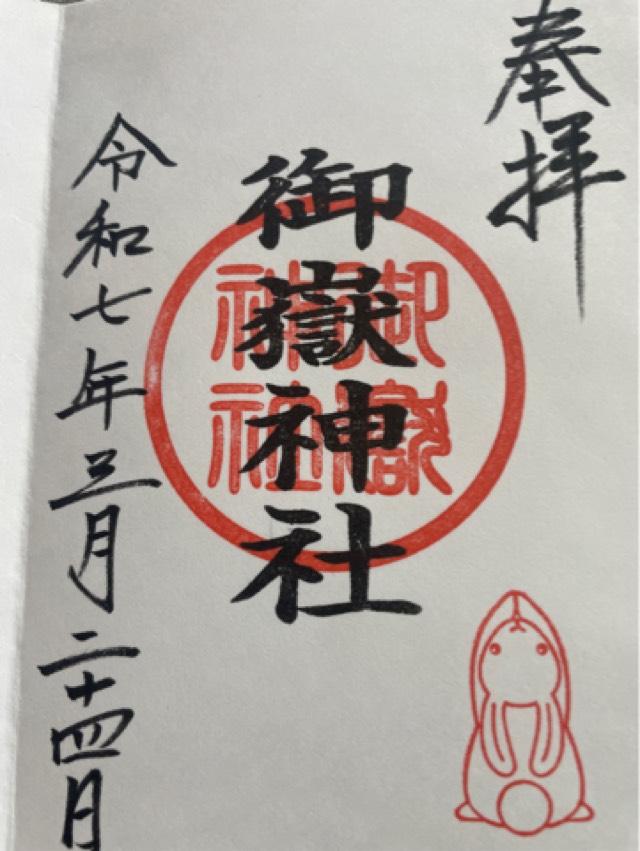 奉拝
御嶽神社
御嶽
神社
令和七年三月二十四日